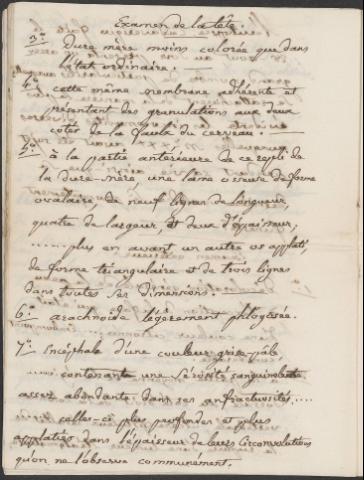 Examen de la tête.
3.° Dure mère moins colorée que dans
l'état ordinaire.
4.° cette même membrane adhérente et
présentant des granulations aux deux
côtés de la faulx du cerveau.
5.° à la partie antérieure de ce repli de
la dure-mère une lame osseuse de forme
ovalaire de neuf lignes de longueur,
quatre de largeur, et deux d'épaisseur,
...... plus en avant un autre os applati,
de forme triangulaire et de trois lignes
dans toutes ses dimensions.
6.° arachnoïde légèrement phlogosée.
7.° Encéphale d'une couleur grise-pâle
contenante une sérosité sanguinolente
assez abondante dans ses anfractuosités.....
celles-ci plus profondes et plus
applaties dans l'épaisseur de leurs circonvolutions
qu'on ne l'observe communément.